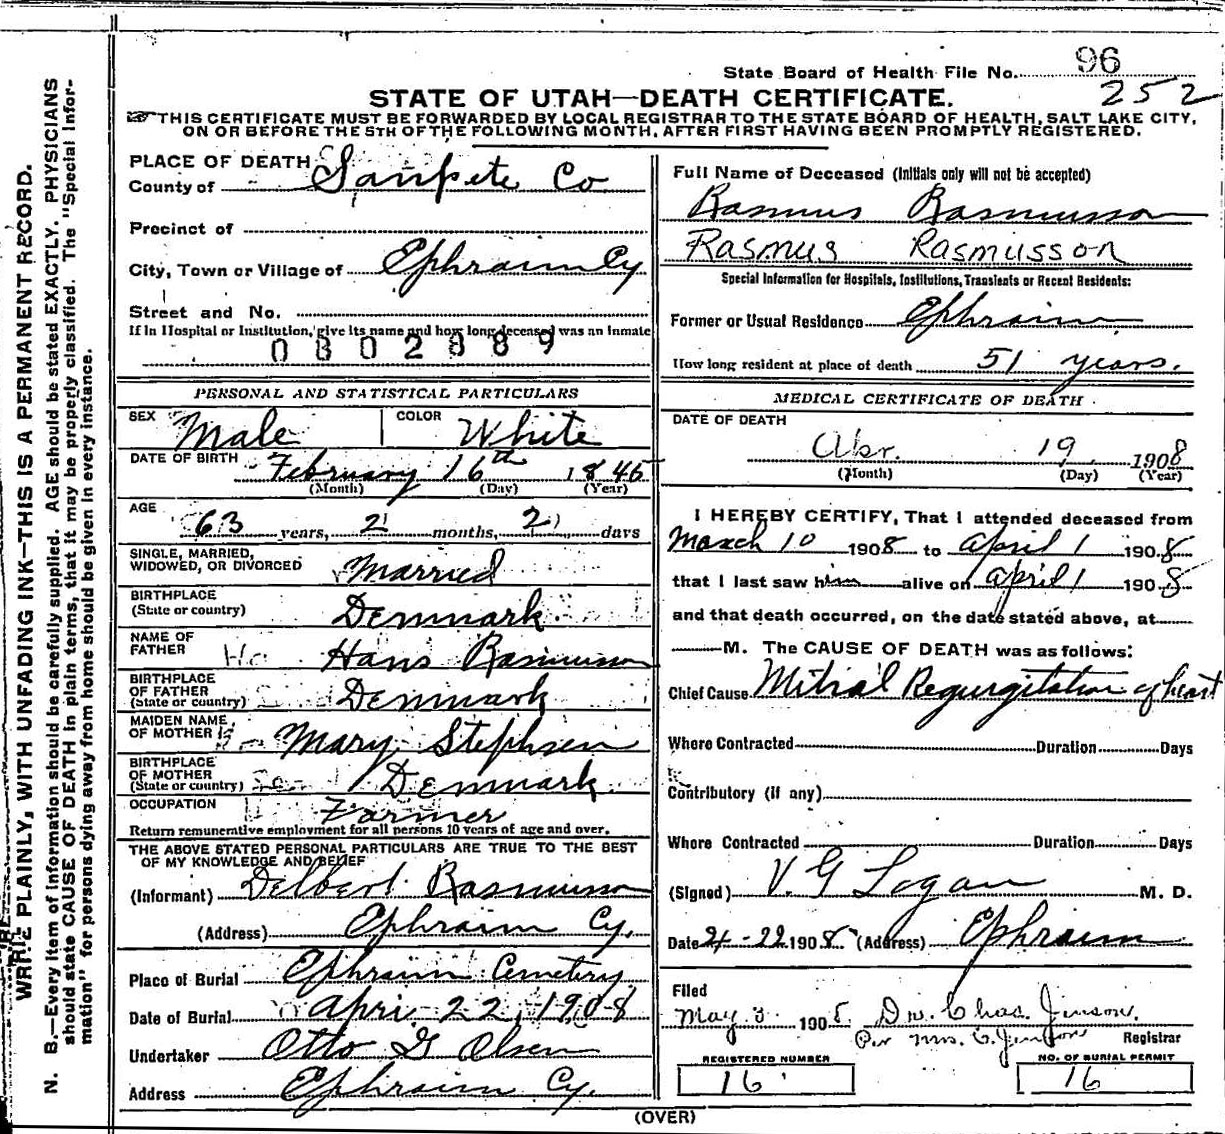 State Board of Health File No. 96
252
STATE OF UTAH—DEATH CERTIFICATE.
THIS CERTIFICATE MUST BE FORWARDED BY LOCAL REGISTRAR TO THE STATE BOARD OF HEALTH, SALT LAKE CITY,
ON OR BEFORE THE 5TH OF THE FOLLOWING MONTH, AFTER FIRST HAVING BEEN PROMPTLY REGISTERED.
WRITE PLAINLY, WITH UNFADING INK—THIS IS A PERMANENT RECORD.
N. B.—Every item of information should be carefully supplied. AGE should be stated EXACTLY. PHYSICIANS
should state CAUSE OF DEATH in plain terms, that it may be properly classified. The "Special Infor-
mation" for persons dying away from home should be given in every instance.
PLACE OF DEATH
County of Sanpete Co
Precinct of
City, Town or Village of Ephraim Cy
Street and No.
If in Hospital or Institution, give its name and how long deceased was an inmate
0802889
PERSONAL AND STATISTICAL PARTICULARS
SEX Male COLOR White
DATE OF BIRTH February 16th 1845
(Month) (Day) (Year)
AGE 63 years, 2 months, 2 days
SINGLE, MARRIED,
WIDOWED, OR DIVORCED Married
BIRTHPLACE
(State or country) Denmark
NAME OF
FATHER Hans Rasmusson
BIRTHPLACE
OF FATHER
(State or country) Denmark
MAIDEN NAME
OF MOTHER Mary Stephsen
BIRTHPLACE
OF MOTHER
(State or country) Denmark
OCCUPATION Farmer
Return remunerative employment for all persons 10 years of age and over.
THE ABOVE STATED PERSONAL PARTICULARS ARE TRUE TO THE BEST
OF MY KNOWLEDGE AND BELIEF
(Informant) Delbert Rasmusson
(Address) Ephraim Cy.
Place of Burial Ephraim Cemetery
Date of Burial April 22, 1908
Undertaker Otto G Olsen
Address Ephraim Cy.
Full Name of Deceased (Initials only will not be accepted)
Rasmus Rasmusson
Rasmus Rasmusson
Special Information for Hospitals, Institutions, Transients or Recent Residents:
Former or Usual Residence Ephraim
How long resident at place of death 51 years.
MEDICAL CERTIFICATE OF DEATH
DATE OF DEATH
Apr. 19 1908
(Month) (Day) (Year)
I HEREBY CERTIFY, That I attended deceased from
March 10 1908 to April 1 1908
that I last saw him alive on April 1 1908
and that death occurred, on the date stated above, at
M. The CAUSE OF DEATH was as follows:
Chief Cause Mitral Regurgitation of heart
Where Contracted Duration Days
Contributory (if any)
Where Contracted Duration Days
(Signed) V. G Logan M. D.
Date 4-22 1908 (Address) Ephraim
Filed
May 3 1908 Dr. Chas. Jenson.
Per Mrs. C. Jenson Registrar
REGISTERED NUMBER NO. OF BURIAL PERMIT
16 16
(OVER)